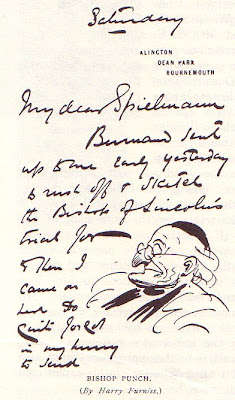 Saturday
ALINGTON
DEAN PARK
BOURNEMOUTH
My dear Spielmann
Burnand sent
up to me early yesterday
to rush off & sketch
the Bishop of Lincoln's
trial for
When I
came on
here so
quite forgot
in my hurry
to send
BISHOP PUNCH.
(By Harry Furniss.)